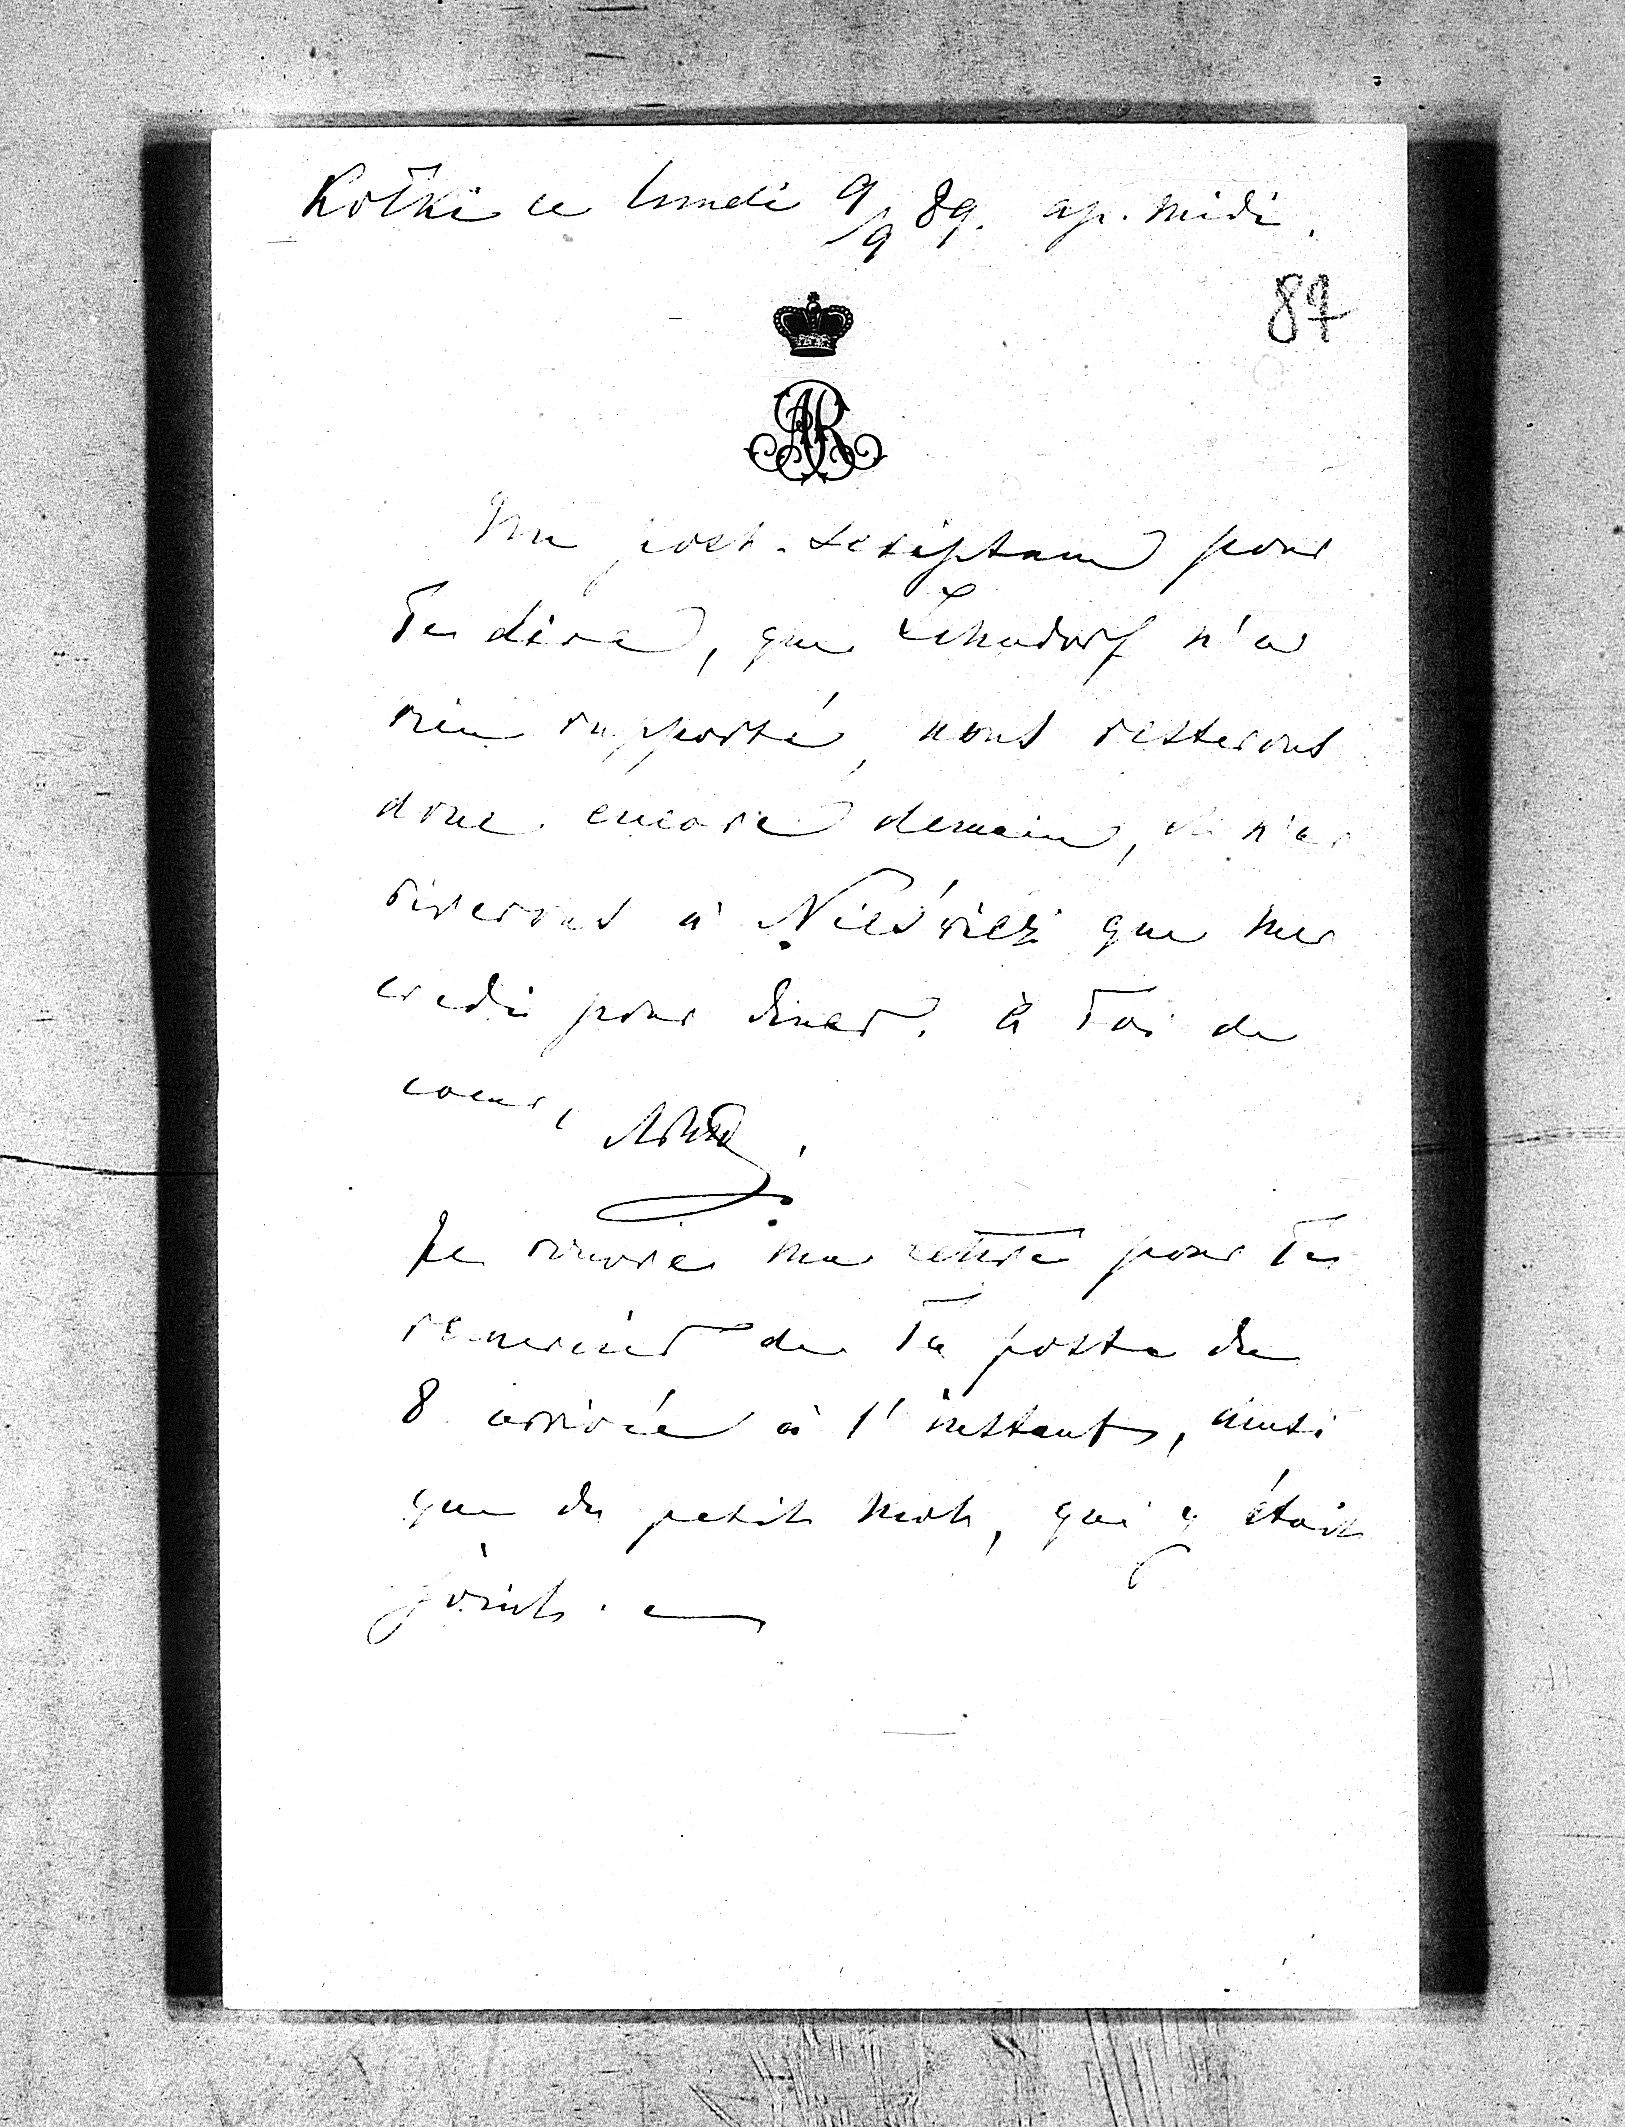 Kołki ce lundi 9/9 89. ap. midi.
87
AR
Un post-scriptum pour
Te dire, que Lehndorf n'a
rien rapporté, nous resterons
donc encore demain, et n'ar
riverons à Nieśwież que mer
credi pour diner. à Toi de
coeur,
Je rouvre ma lettre pour Te
remercier de Ta poste du
8 arrivée à l'instant, ainsi
que du petit mot, qui y était
joint.